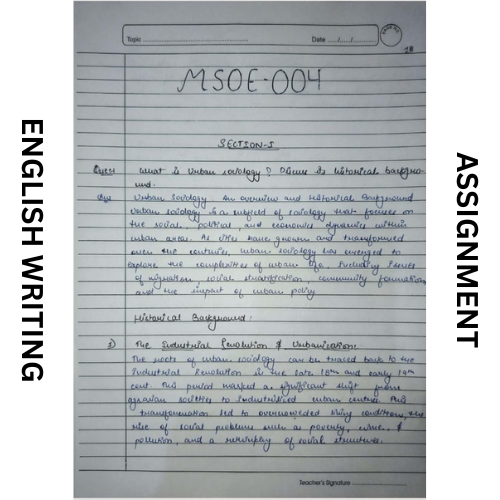 Topic
Date / /
PAGE NO.
18
MSOE-004
SECTION-I
What is Urban sociology ? Discuss its historical backgrou-
nd.
Urban Sociology : An overview and Historical Background
Urban sociology is a subfield of sociology that focuses on
the social, political, and economic dynamics within
urban areas. As cities have grown and transformed
over the centuries, urban sociology has emerged to
explore the complexities of urban life, including issues
of migration, social stratification, community formation,
and the impact of urban policy
Historical Background :
1) The Industrial Revolution & Urbanisation:
The roots of urban sociology can be traced back to the
Industrial Revolution in the late 18th and early 19th
cent. This period marked a significant shift from
agrarian societies to industrialised urban centres. This
transformation led to overcrowded living conditions, the
rise of social problems such as poverty, crime, &
pollution, and a reshaping of social structures.
Teacher's Signature
ENGLISH WRITING
ASSIGNMENT